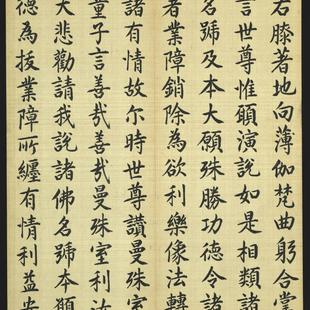 右膝著地向薄伽梵曲躬合掌
言世尊惟願演說如是相類諸
名號及本大願殊勝功德令諸
者業障銷除為欲利樂像法轉
諸有情故尔時世尊讚曼殊室
童子言善哉善哉曼殊室利汝
大悲勸請我說諸佛名號本願
德為拔業障所纏有情利益安